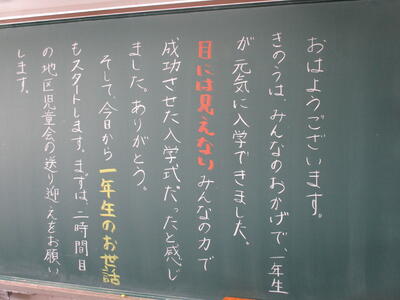 おはようございます。
きのうは、みんなのおかげで、一年生
が元気に入学できました。
目には見えないみんなの力で
成功させた入学式だったと感じ
ました。ありがとう。
そして、今日から一年生のお世話
もスタートします。まずは、二時間目
の地区児童会の送り迎えをお願い
します。